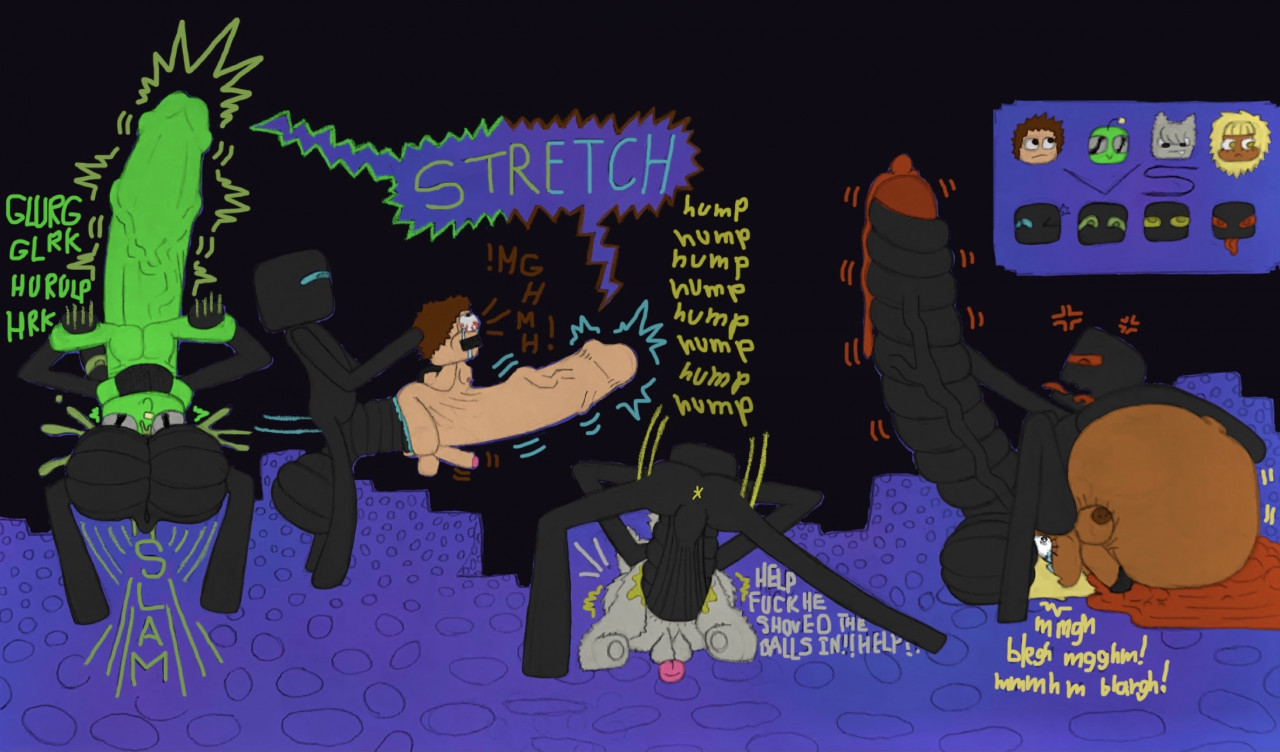 STRETCH
GLURG
GLRK
HURULP
HRK
!MG
H
M
H!
hump
hump
hump
hump
hump
hump
hump
hump
VS
SLAM
HELP
FUCK HE
SHOVED THE
BALLS IN!!HELP!!
mmgh
blegh mgghm!
hmmhm blargh!